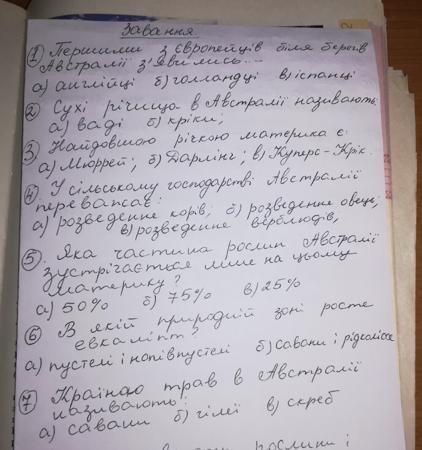 Завання
1 Першими з європейців біля берегів
Австралії з'явились...
а) англійці б) голландці в) іспанці
2 Сухі річища в Австралії називають:
а) ваді б) кріки;
3. Найдовшою річкою материка є:
а) Мюррей; б) Дарлінг; в) Куперс-Крік.
4 У сільському господарстві Австралії
переважає:
а) розведення корів; б) розведення овець;
в) розведення верблюдів;
5. Яка частина рослин Австралії
зустрічається лише на цьому
материку?
а) 50% б) 75% в) 25%
6 В якій природній зоні росте
евкаліпт?
а) пустелі і напівпустелі б) савани і рідколісся
7 Країною трав в Австралії
називають:
а) савани б) гілеї в) скреб
рослини і